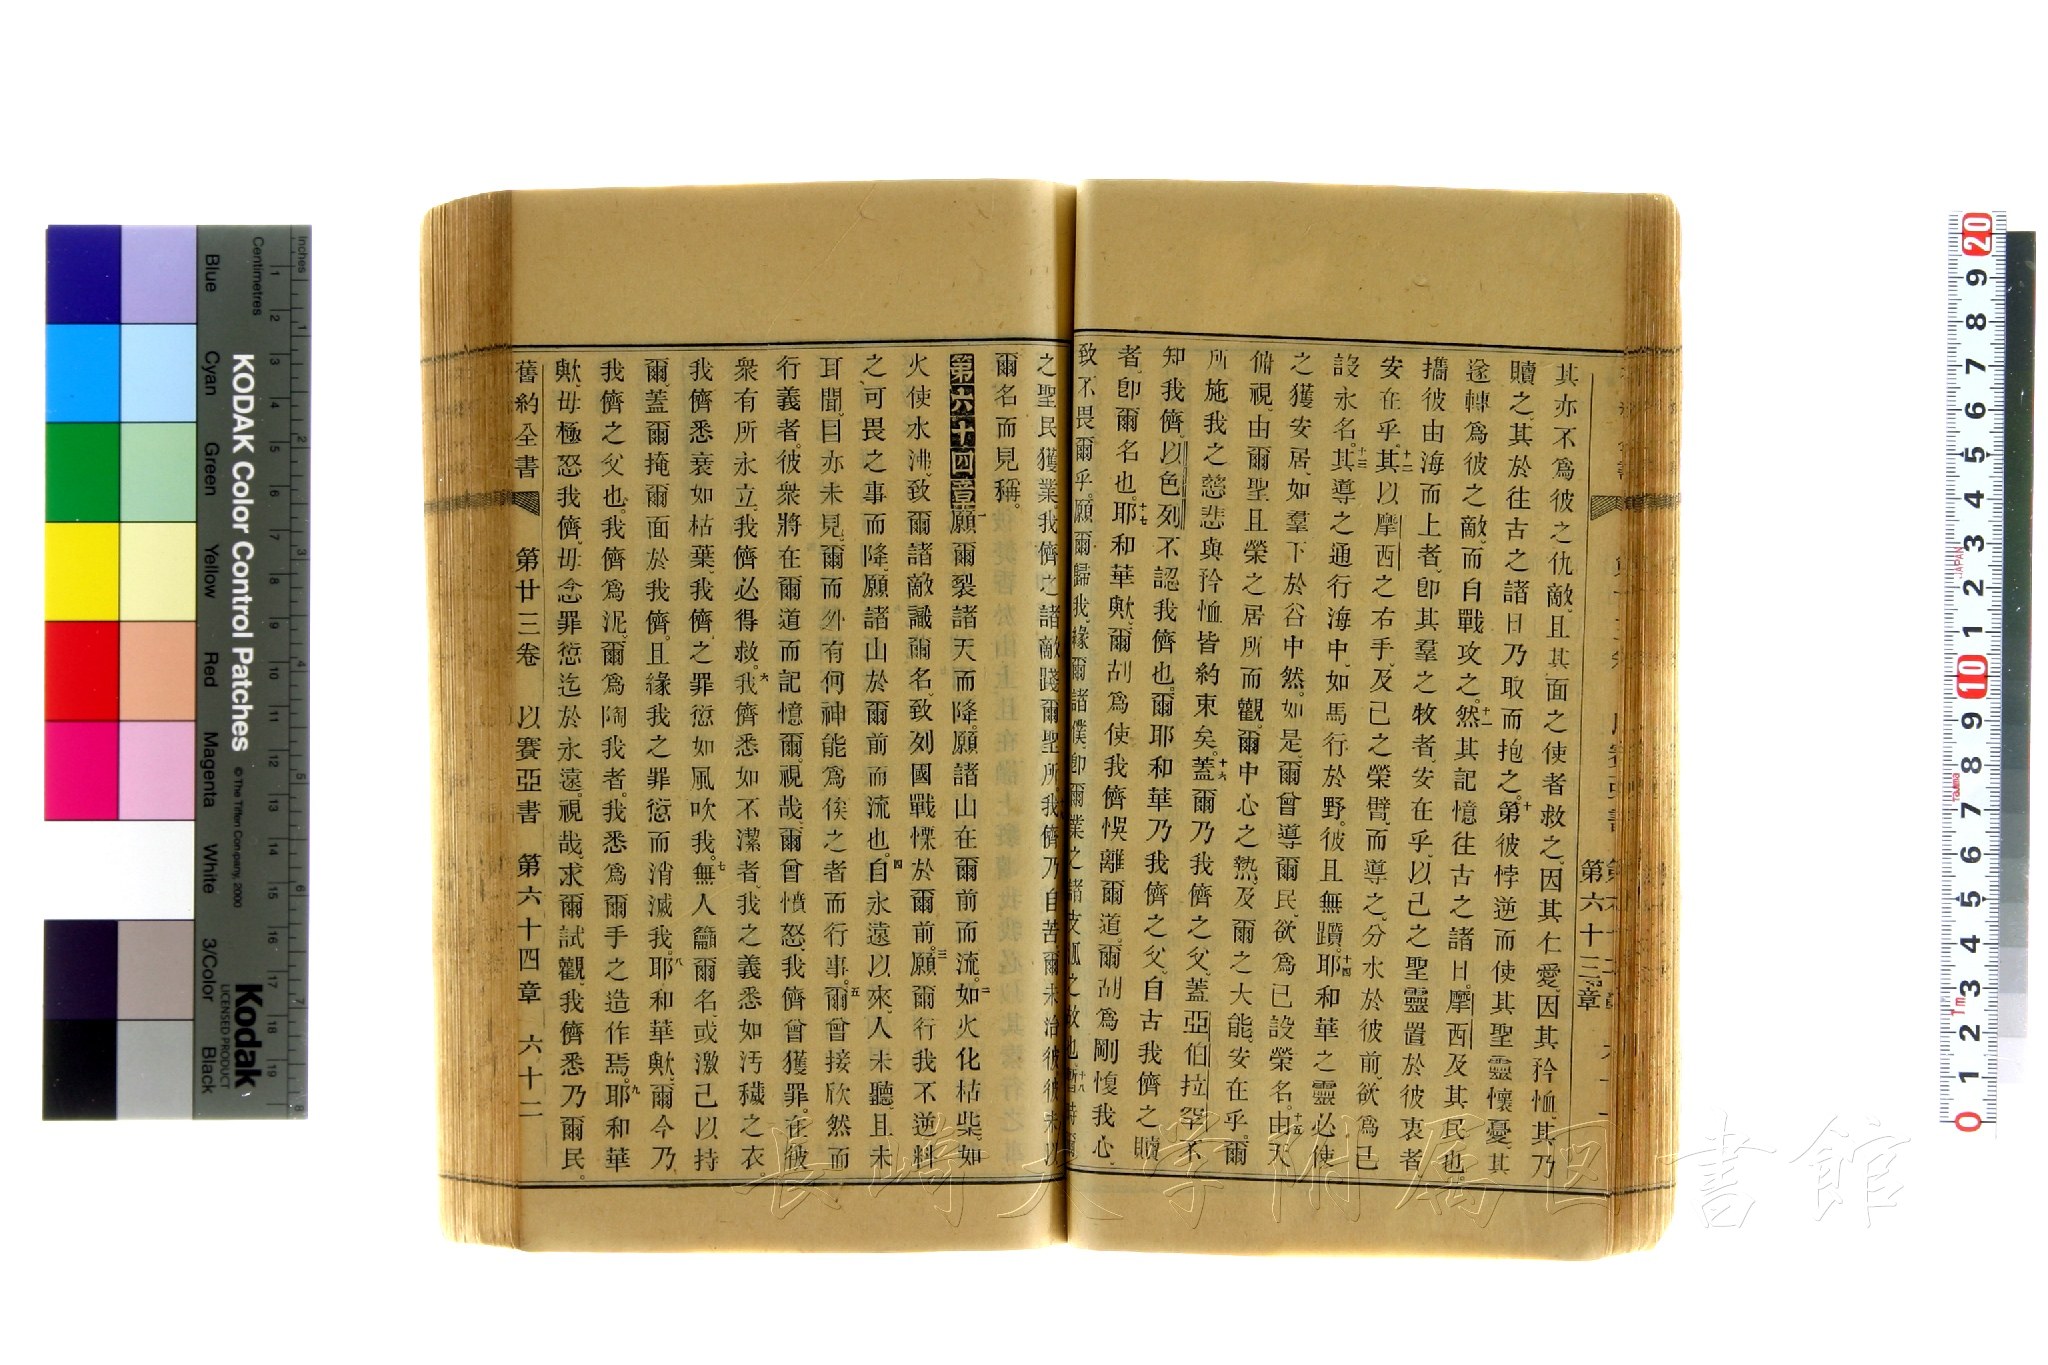 其亦不爲彼之仇敵、且其面之使者救之、因其仁愛、因其矜恤、其乃
贖之、其於往古之諸日乃取而抱之。十第彼悖逆而使其聖靈懷憂、其
遂轉爲彼之敵、而自戰攻之。十一然其記憶往古之諸日。摩西及其民也。
攜彼由海而上者、卽其羣之牧者、安在乎、以己之聖靈置於彼衷者
安在乎。十二其以摩西之右手、及己之榮臂、而導之、分水於彼前、欲爲己
設永名。十三其導之通行海中、如馬行於野。彼且無躓。十四耶和華之靈必使
之獲安居、如羣下於谷中然。如是、爾曾導爾民、欲爲己設榮名。十五由天
俯視、由爾聖且榮之居所而觀。爾中心之熱、及爾之大能、安在乎。爾
所施我之慈悲與矜恤皆約束矣。十六蓋爾乃我儕之父、蓋亞伯拉罕不
知我儕、以色列不認我儕也。爾耶和華乃我儕之父、自古我儕之贖
者、卽爾名也。十七耶和華歟、爾胡爲使我儕悞離爾道。爾胡爲剛愎我心、
致不畏爾乎。願爾歸我、緣爾諸僕、卽爾業之諸支派之故也。十八
第六十三章
之聖民獲業、我儕之諸敵踐爾聖所、我儕乃自苦、爾未治彼、彼未以
爾名而見稱。
第六十四章一願爾裂諸天而降、願諸山在爾前而流。二如火化枯柴、如
火使水沸、致爾諸敵識爾名、致列國戰慄於爾前。三願爾行我不逆料
之、可畏之事而降、願諸山於爾前而流也。四自永遠以來、人未聽、且未
耳聞、目亦未見、爾而外有何神能爲俟之者而行事。五爾曾接欣然而
行義者。彼衆將在爾道而記憶爾。視哉、爾曾憤怒、我儕曾獲罪。在彼
衆有所永立、我儕必得救。六我儕悉如不潔者、我之義悉如汚穢之衣。
我儕悉衰如枯葉、我儕之罪愆如風吹我。七無人籲爾名、或激己以持
爾、蓋爾掩爾面於我儕。且緣我之罪愆而消滅我。八耶和華歟、爾今乃
我儕之父也。我儕爲泥、爾爲陶我者。我悉爲爾手之造作焉。九耶和華
歟、毋極怒我儕、毋念罪愆迄於永遠。視哉、求爾試觀、我儕悉乃爾民。
舊約全書 第廿三卷 以賽亞書 第六十四章 六十二
長崎大学附属図書館
KODAK Color Control Patches
© The Tiffen Company, 2000
Kodak
LICENSED PRODUCT
Inches
Centimetres
Blue
Cyan
Green
Yellow
Red
Magenta
White
3/Color
Black
JAPAN